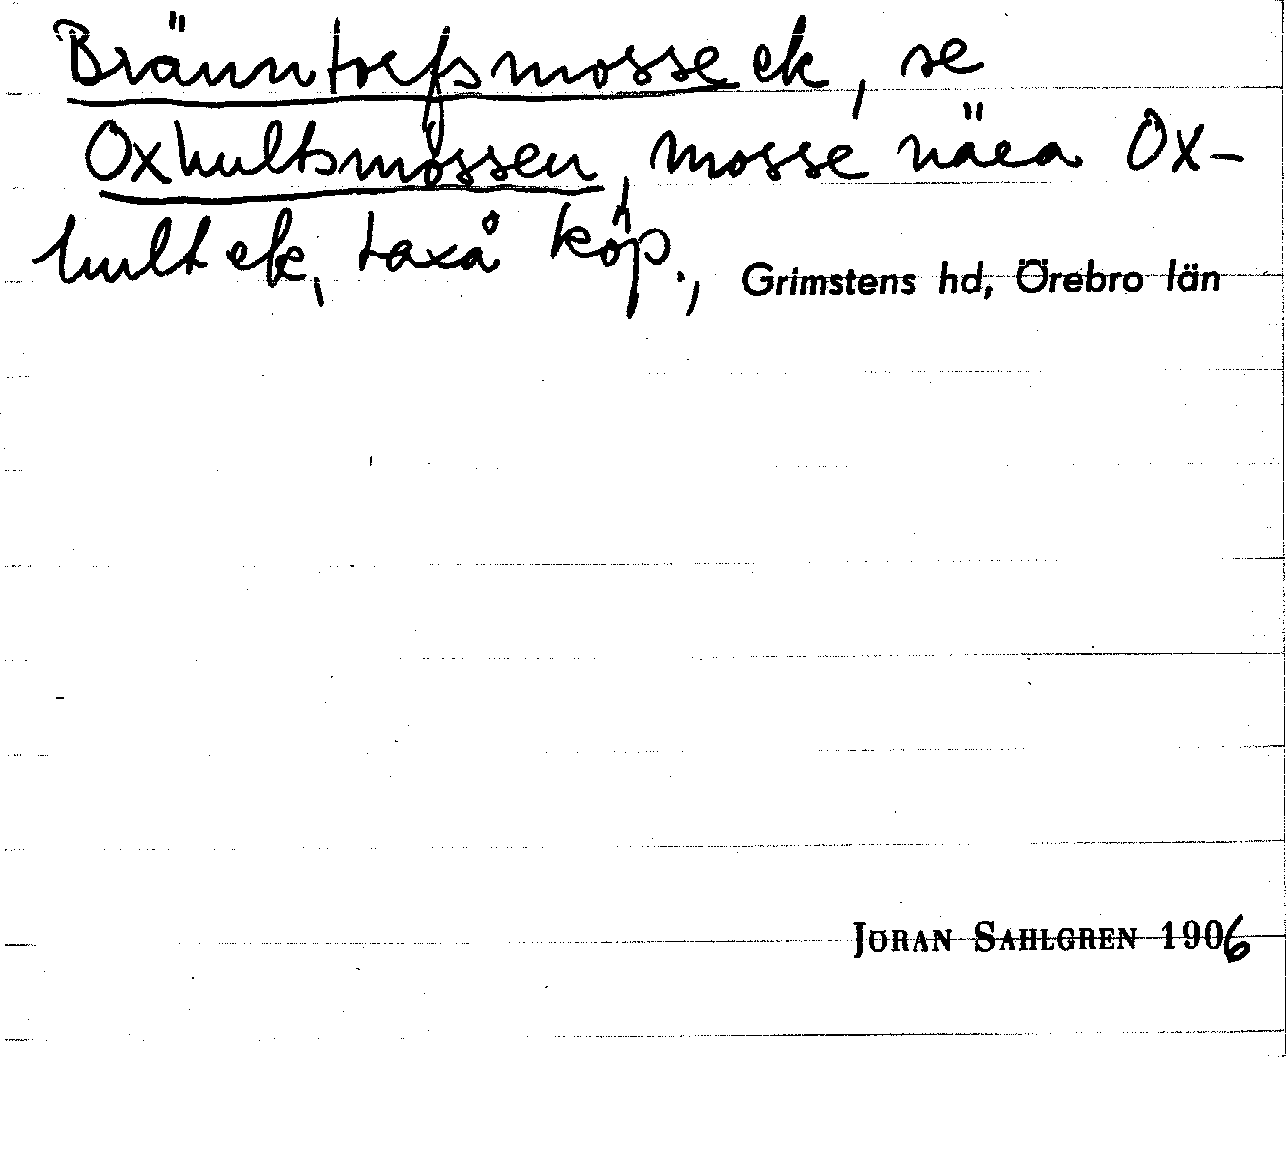 Bränntorfsmosse ek, se
Oxhultsmossen, mosse nära Ox-
hult ek, Laxå köp., Grimstens hd, Örebro län
JÖRAN SAHLGREN 1906